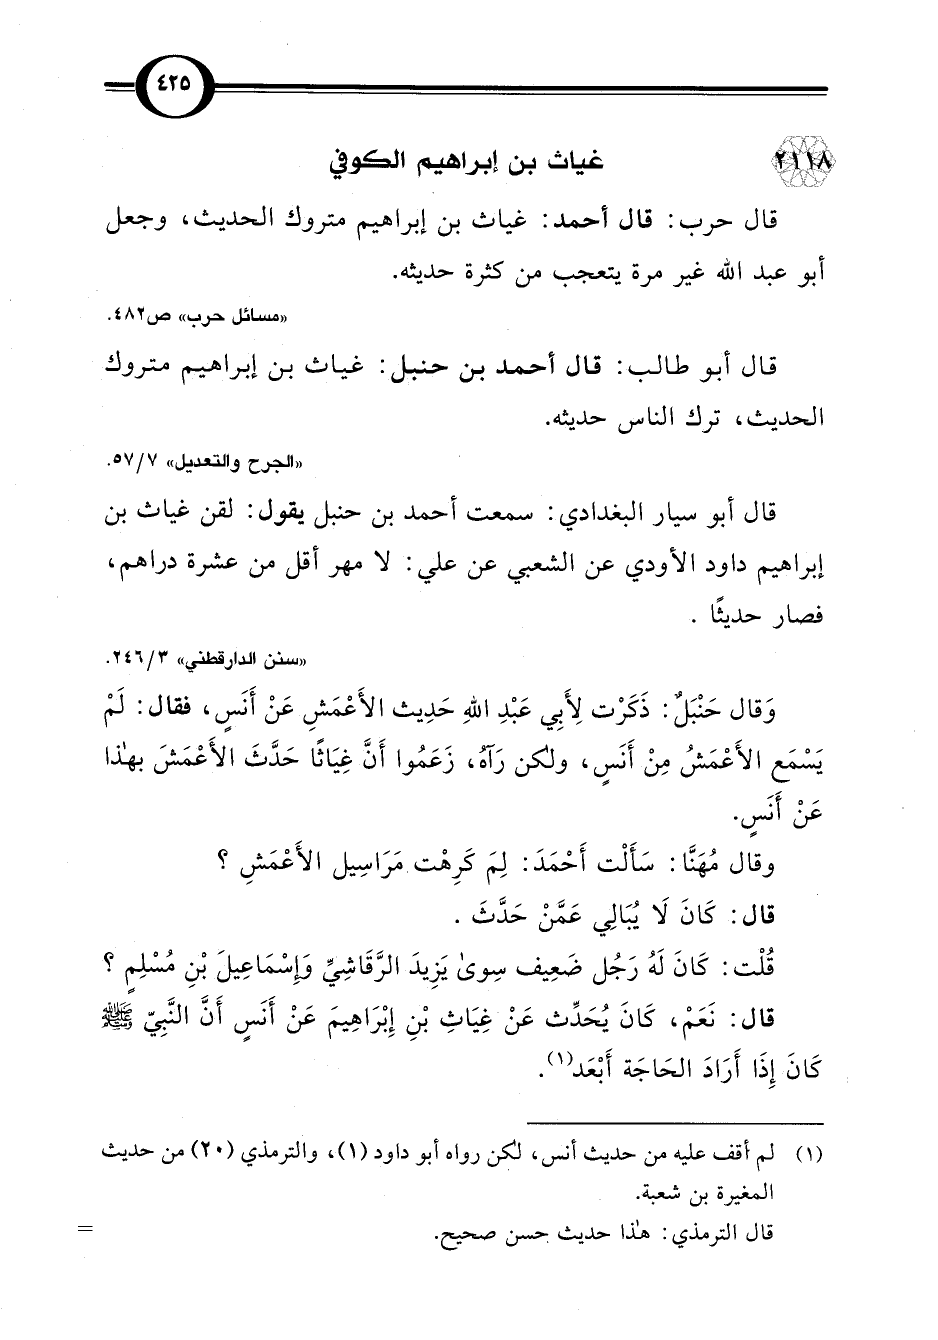 ٤٢٥
٢١١٨ غياث بن إبراهيم الكوفي
قال حرب: قال أحمد: غياث بن إبراهيم متروك الحديث، وجعل
أبو عبد الله غير مرة يتعجب من كثرة حديثه.
«مسائل حرب» ص٤٨٢.
قال أبو طالب: قال أحمد بن حنبل: غياث بن إبراهيم متروك
الحديث، ترك الناس حديثه.
«الجرح والتعديل» ٥٧/٧.
قال أبو سيار البغدادي: سمعت أحمد بن حنبل يقول: لقن غياث بن
إبراهيم داود الأودي عن الشعبي عن علي: لا مهر أقل من عشرة دراهم،
فصار حديثًا .
«سنن الدارقطني» ٢٤٦/٣.
وَقال حَنْبَلٌ: ذَكَرْت لِأَبِي عَبْدِ اللهِ حَدِيث الأَعْمَشِ عَنْ أَنَسٍ، فقال: لَمْ
يَسْمَع الأَعْمَشُ مِنْ أَنَسٍ، ولكن رَآهُ، زَعَمُوا أَنَّ غِيَاثًا حَدَّثَ الأَعْمَشَ بهٰذا
عَنْ أَنَسٍ.
وقال مُهَنَّا: سَأَلْت أَحْمَدَ: لِمَ كَرِهْت مَرَاسِيل الأَعْمَشِ ؟
قال: كَانَ لَا يُبَالِي عَمَّنْ حَدَّثَ .
قُلْت: كَانَ لَهُ رَجُل ضَعِيف سِوىٰ يَزِيدَ الرَّقَاشِيِّ وَإِسْمَاعِيلَ بْنِ مُسْلِمٍ ؟
قال: نَعَمْ، كَانَ يُحَدِّث عَنْ غِيَاثِ بْنِ إِبْرَاهِيمَ عَنْ أَنَسٍ أَنَّ النَّبِيّ ﷺ
كَانَ إِذَا أَرَادَ الحَاجَة أَبْعَد(١).
(١) لم أقف عليه من حديث أنس، لكن رواه أبو داود (١)، والترمذي (٢٠) من حديث
المغيرة بن شعبة.
قال الترمذي: هٰذا حديث حسن صحيح. =